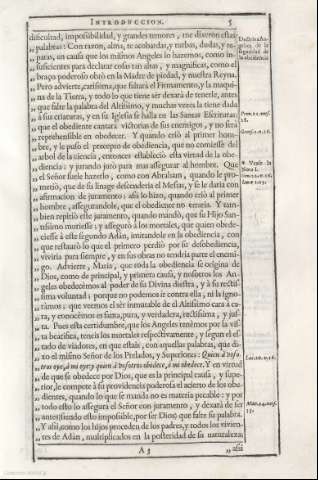 INTRODUCCION. 5
dificultad, impossibilidad, y grandes temores, me dixeron estas
palabras: Con razon, alma, te acobardas, y turbas, dudas, y re-
paras, en causa que los mismos Angeles lo hazemos, como in-
suficientes para declarar cosas tan altas, y magnificas, como el
braço poderoso obrò en la Madre de piedad, y nuestra Reyna.
Pero advierte, carissima, que faltarà el Firmamento, y la maqui-
na de la Tierra, y todo lo que tiene ser dexarà de tenerle, antes
que falte la palabra del Altissimo, y muchas vezes la tiene dada
à sus criaturas, y en su Iglesia se halla en las Santas Escrituras:
que el obediente cantarà victorias de sus enemigos, y no serà
reprehensible en obedecer. Y quando criò al primer hom-
bre, y le puso el precepto de obediencia, que no comiesse del
arbol de la ciencia, entonces estableciò esta virtud de la obe-
diencia: y jurando jurò para mas assegurar al hombre. Que
el Señor suele hazerlo, como con Abraham, quando le pro-
metiò, que de su linage descenderia el Mesias, y se le daria con
afirmacion de juramento: assi lo hizo, quando criò al primer
hombre, assegurandole, que el obediente no erraria. Y tam-
bien repitiò este juramento, quando mandò, que su Hijo San-
tissimo muriesse: y assegurò à los mortales, que quien obede-
ciesse à este segundo Adàn, imitandole en la obediencia, con
que restaurò lo que el primero perdiò por su desobediencia,
viviria para siempre, y en sus obras no tendria parte el enemi-
go. Advierte, Maria, que toda la obediencia se origina de
Dios, como de principal, y primera causa, y nosotros los An-
geles obedecemos al poder de su Divina diestra, y à su rectis-
sima voluntad: porque no podemos ir contra ella, ni la igno-
ramos: que veemos el sèr inmutable de el Altissimo cara à ca-
ra, y conocèmos es santa, pura, y verdadera, rectissima, y jus-
ta. Pues esta certidumbre, que los Angeles tenèmos por la vis-
ta beatifica, teneis los mortales respectivamente, y segun el es-
tado de viadores, en que estais, con aquellas palabras, que di-
xo el mismo Señor de los Prelados, y Superiores: Quien à voso-
tros oye, à mi oye: y quien à vosotros obedece, à mi obedece. Y en virtud
de que se obedece por Dios, que es la principal causa, y supe-
rior, le compete à su providencia poderosa el acierto de los obe-
dientes, quando lo que se manda no es materia pecable: y por
todo esto lo assegura el Señor con juramento, y dexarà de ser
antes (siendo esto impossible, por ser Dios) que falte su palabra.
Y assi, como los hijos proceden de los padres, y todos los vivien-
tes de Adàn, multiplicados en la posteridad de su naturaleza;
A 3 assi